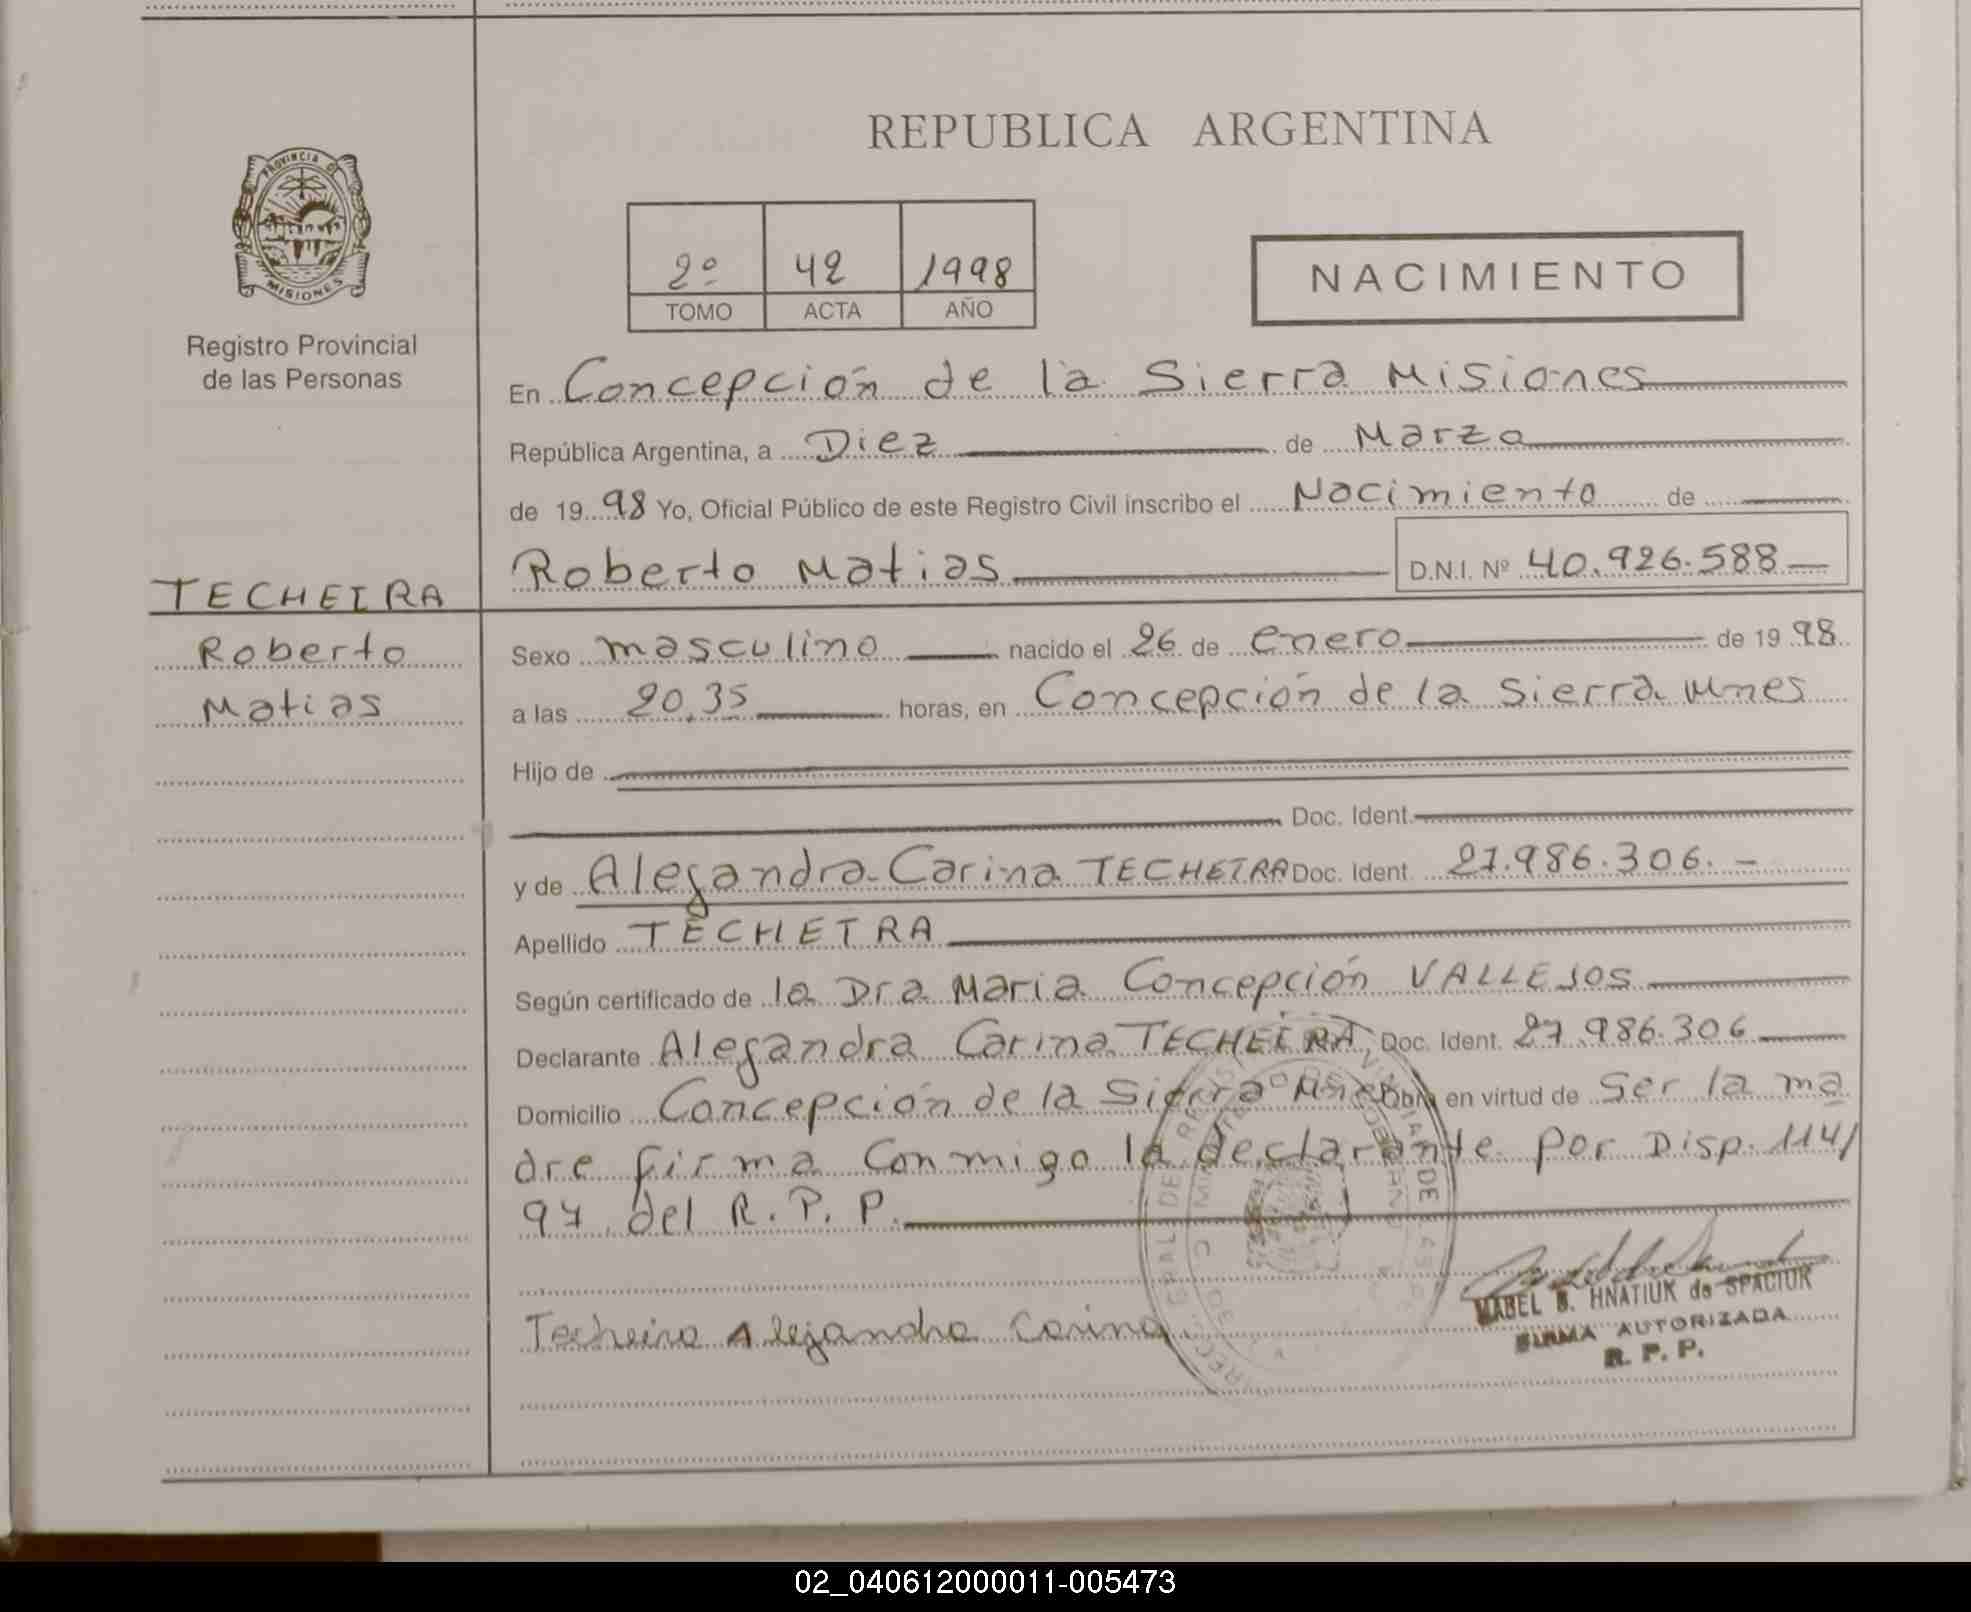 PROVINCIA DE
MISIONES
Registro Provincial
de las Personas
REPUBLICA ARGENTINA
2º 42 1998
TOMO ACTA AÑO
NACIMIENTO
En Concepción de la Sierra Misiones
República Argentina, a Diez de Marzo
de 1998 Yo, Oficial Público de este Registro Civil inscribo el Nacimiento de
Roberto Matias D.N.I. Nº 40.926.588
TECHEIRA
Roberto
Matias
Sexo masculino nacido el 26 de enero de 1998
a las 20,35 horas, en Concepción de la Sierra Mnes
Hijo de
Doc. Ident.
y de Alejandra Carina TECHEIRA Doc. Ident. 27.986.306.-
Apellido TECHEIRA
Según certificado de la Dra Maria Concepción VALLEJOS
Declarante Alejandra Carina TECHEIRA, Doc. Ident. 27.986.306
Domicilio Concepción de la Sierra Mnes Obra en virtud de Ser la ma
dre firma Conmigo la declarante por Disp. 114/
97 del R. P. P.
Techeira Alejandra Carina
MABEL B. HNATIUK de SPACIUK
FIRMA AUTORIZADA
R. P. P.
02_040612000011-005473